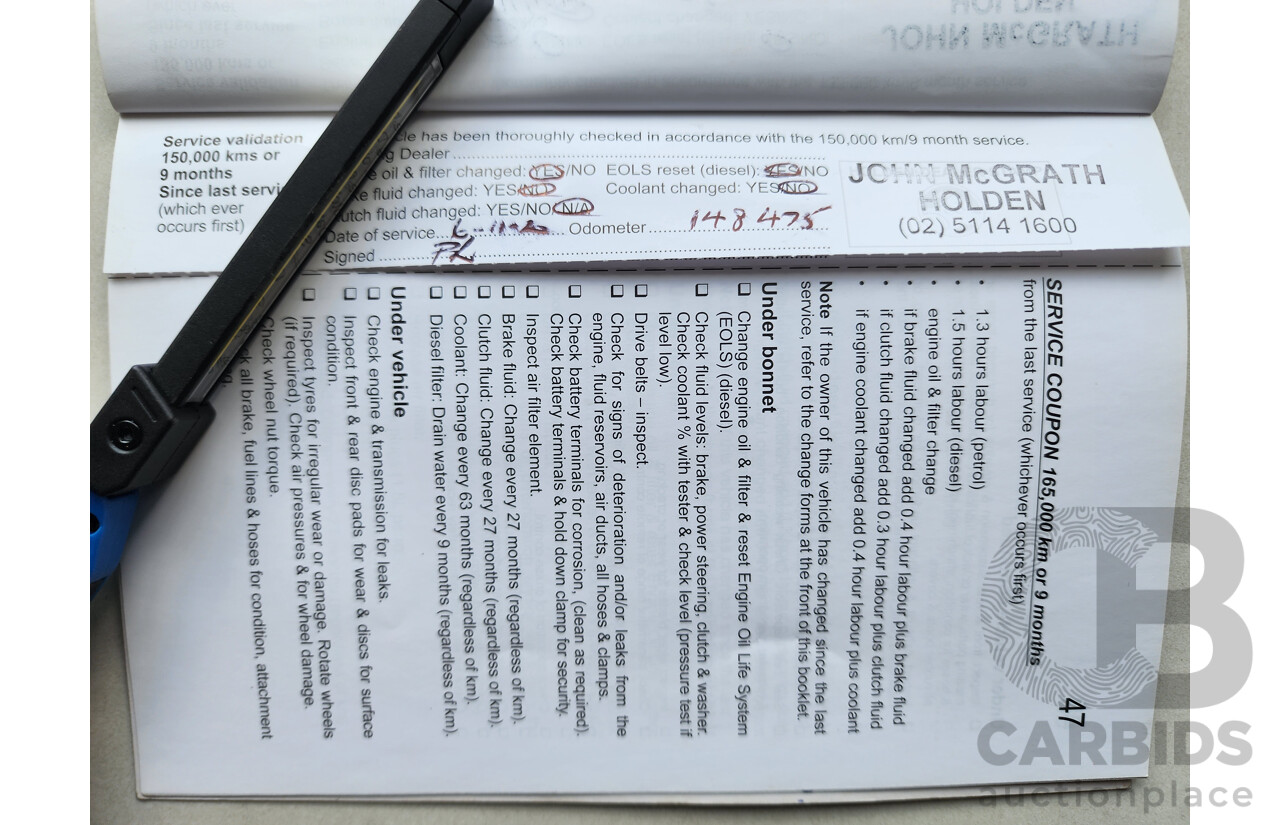 HOLDEN
JOHN McGRATH
Service validation
150,000 kms or
9 months
Since last servi
(which ever
occurs first)
cle has been thoroughly checked in accordance with the 150,000 km/9 month service.
g Dealer
e oil & filter changed: YES/NO EOLS reset (diesel): YES/NO
ke fluid changed: YES/NO Coolant changed: YES/NO
utch fluid changed: YES/NO/N/A
Date of service Odometer 148475
Signed
JOHN McGRATH
HOLDEN
(02) 5114 1600
47
SERVICE COUPON 165,000 km or 9 months
from the last service (whichever occurs first)
• 1.3 hours labour (petrol)
• 1.5 hours labour (diesel)
• engine oil & filter change
• if brake fluid changed add 0.4 hour labour plus brake fluid
• if clutch fluid changed add 0.3 hour labour plus clutch fluid
• if engine coolant changed add 0.4 hour labour plus coolant
Note If the owner of this vehicle has changed since the last
service, refer to the change forms at the front of this booklet.
Under bonnet
❑ Change engine oil & filter & reset Engine Oil Life System
(EOLS) (diesel).
❑ Check fluid levels: brake, power steering, clutch & washer.
Check coolant % with tester & check level (pressure test if
level low).
❑ Drive belts – inspect.
❑ Check for signs of deterioration and/or leaks from the
engine, fluid reservoirs, air ducts, all hoses & clamps.
❑ Check battery terminals for corrosion, (clean as required).
Check battery terminals & hold down clamp for security.
❑ Inspect air filter element.
❑ Brake fluid: Change every 27 months (regardless of km).
❑ Clutch fluid: Change every 27 months (regardless of km).
❑ Coolant: Change every 63 months (regardless of km).
❑ Diesel filter: Drain water every 9 months (regardless of km).
Under vehicle
❑ Check engine & transmission for leaks.
❑ Inspect front & rear disc pads for wear & discs for surface
condition.
❑ Inspect tyres for irregular wear or damage. Rotate wheels
(if required). Check air pressures & for wheel damage.
Check wheel nut torque.
k all brake, fuel lines & hoses for condition, attachment
ng.
CARBIDS
auctionplace